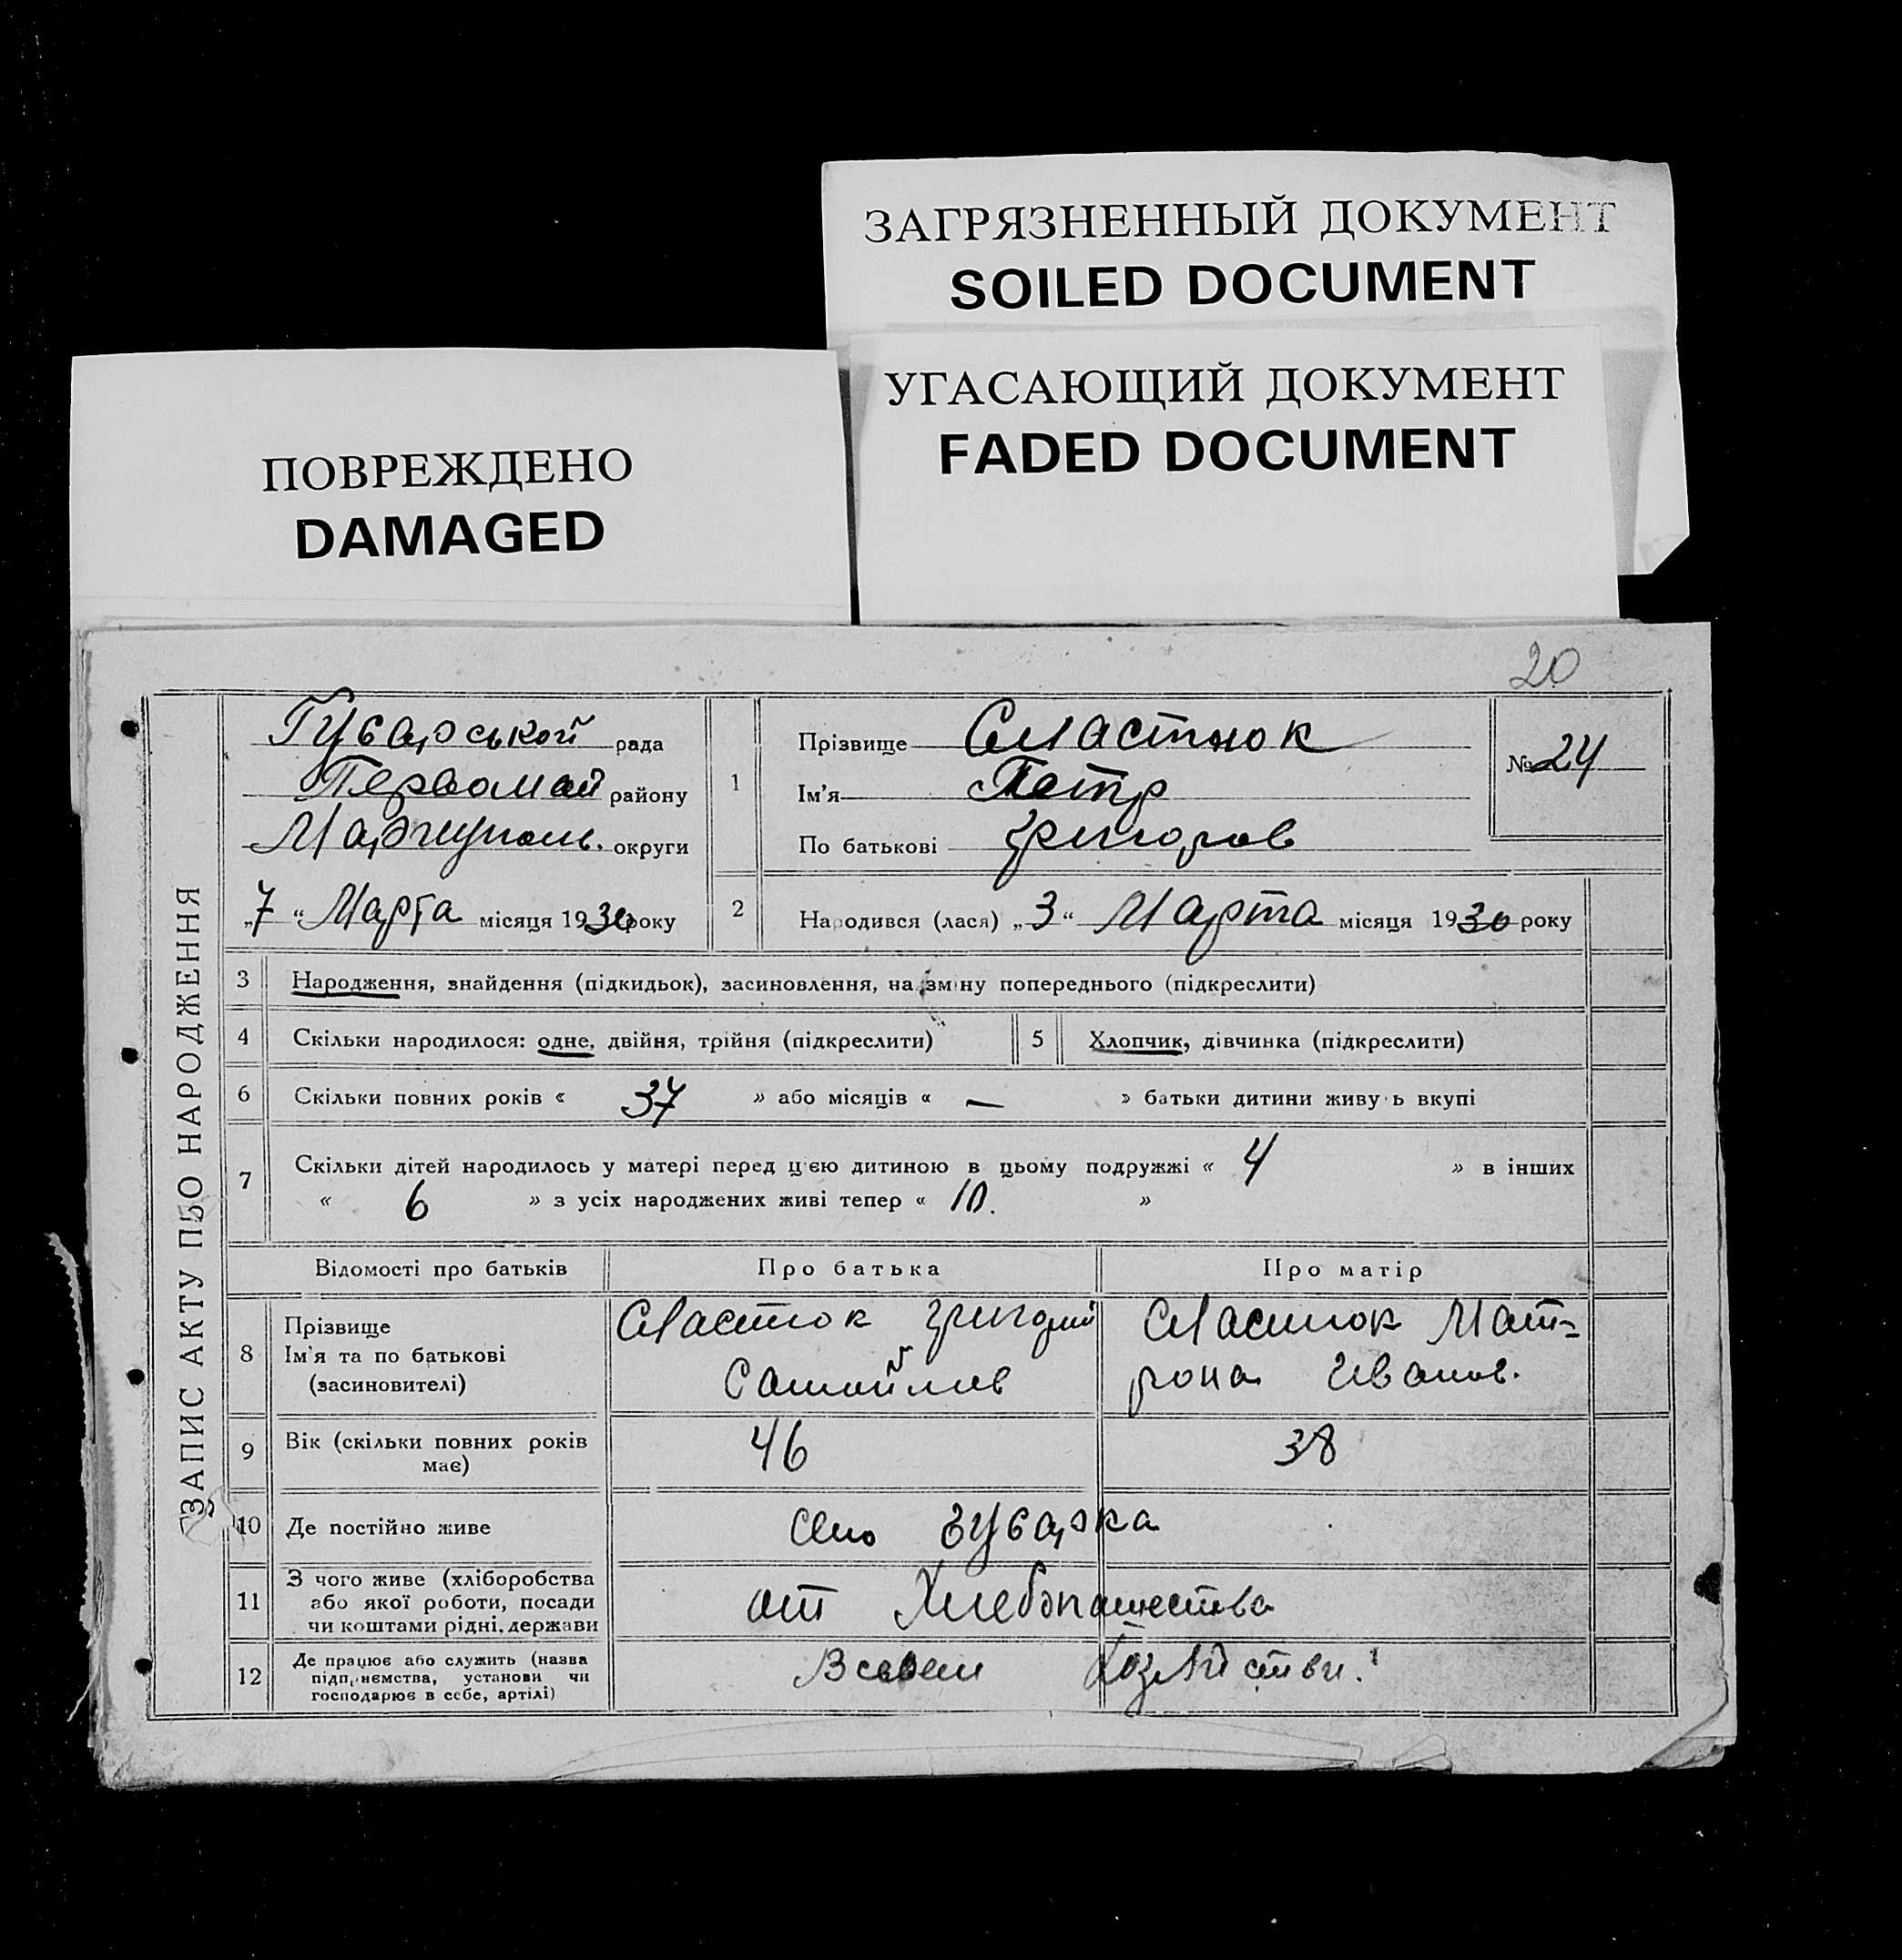 ЗАГРЯЗНЕННЫЙ ДОКУМЕНТ
SOILED DOCUMENT
УГАСАЮЩИЙ ДОКУМЕНТ
FADED DOCUMENT
ПОВРЕЖДЕНО
DAMAGED
20
ЗАПИС АКТУ ПРО НАРОДЖЕННЯ
рада
району
округи
„7“ Марта місяця 1930 року
1
Прізвище Сластюк
Ім'я Петр
По батькові Григоров
№ 24
2
Народився (лася) „3“ Марта місяця 1930 року
3 Народження, знайдення (підкидьок), засиновлення, на зміну попереднього (підкреслити)
4 Скільки народилося: одне, двійня, трійня (підкреслити)
5 Хлопчик, дівчинка (підкреслити)
6 Скільки повних років « 37 » або місяців « — » батьки дитини живуть вкупі
7 Скільки дітей народилось у матері перед цією дитиною в цьому подружжі « 4 » в інших
« 6 » з усіх народжених живі тепер « 10. »
Відомості про батьків
Про батька
Про матір
8 Прізвище
Ім'я та по батькові
(засиновителі)
Сластюк Григорий
Самойлов
Сластюк Мат-
рона Иванов.
9 Вік (скільки повних років
має)
46
38
10 Де постійно живе
Село
11 З чого живе (хліборобства
або якої роботи, посади
чи коштами рідні, держави
от Хлебопашества
12 Де працює або служить (назва
підприємства, установи чи
господарює в себе, артілі)